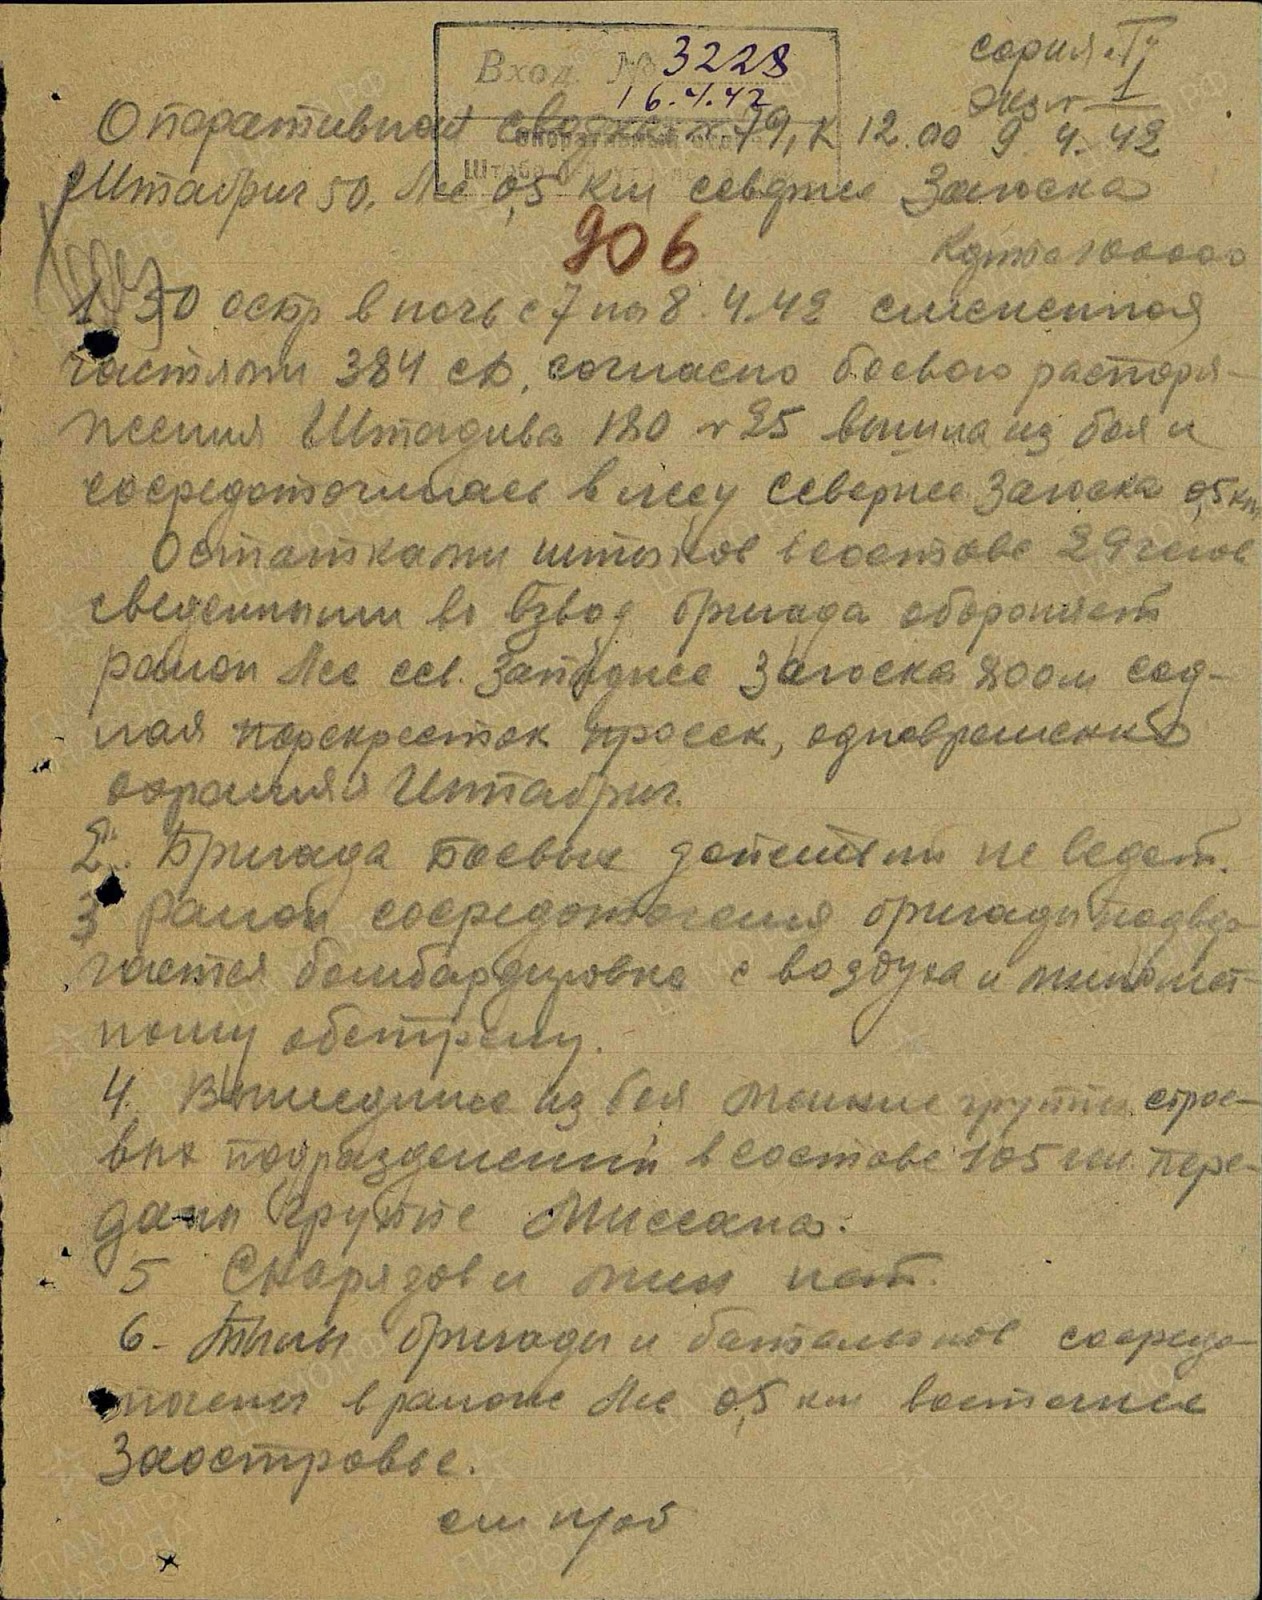 серия "Г"
Экз № 1
Вход. № 3228
16.4.42
Оперативная сводка № 79, к 12.00 9.4.42
Штабриг 50. Лес 0,5 км севернее Загоска
Карта 100000
906
1. 50 осбр в ночь с 7 на 8.4.42 смененная
частями 384 сд, согласно боевого распоря-
жения Штадива 180 № 25 вышла из боя и
сосредоточилась в лесу севернее Загоска 0,5 км
Остатками штыков в составе 29 челов
сведенными во взвод бригада обороняет
район Лес сев. Западнее Загоска 800 м сед-
лая перекресток просек, одновременно
охраняя Штабриг.
2. Бригада боевых действий не ведет.
3 Район сосредоточения бригады подвер-
гается бомбардировке с воздуха и миномет-
ному обстрелу.
4. Вышедшие из боя мелкие группы строе-
вых подразделений в составе 105 чел. пере-
даны группе Миссана.
5 Снарядов и мин нет.
6. Тылы бригады и батальонов сосредо-
точены в районе Лес 0,5 км восточнее
Заостровье.
см н/об